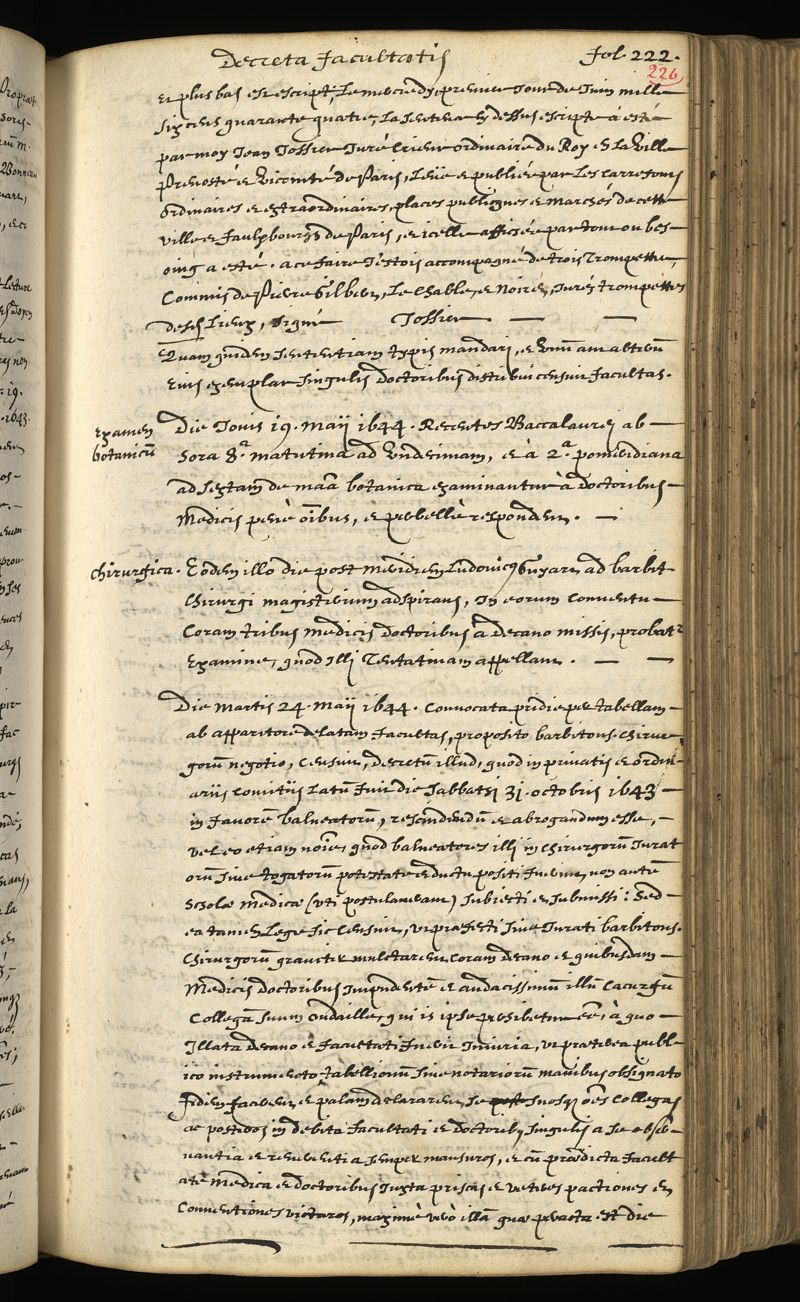 Decreta facultatis fol. 222.
226
Et plus bas est escript, Le mercredy premier Jour de Juin mille
six cens quarante quatre, La sentence cy dessus escripte a esté
par moy Jean Jossier Juré Crieur ordinaire du Roy en La Ville
Prevosté et Vicomté de Paris, Leüe et publiée par Les Carrefours
ordinaires et extraordinaires, places publicques et marchés de cette
ville et faulxbourgs de Paris, et icelle affichée partout ou bes-
oing a esté. a ce faire J'estois accompagné de trois Trompettes,
Commis de Pierre Gilbert, Le Chable, et Noiret, Jurés trompettes
desd. Lieux, signé Jossier
Quam quidem sententiam typis mandari, et unum aut alterum
eius exemplar singulis doctoribus distribui censuit facultas.
Examen
botanicū
Die Jovis 19. Maij 1644. Recentes Baccalaurei ab
hora 8.a matutina ad undecimam, et à 2.a pomeridiana
ad sextam de maa botanica examinantur à doctoribus
Medicis penè oībus, et perbellè respondent.
Chirurgica.
Eodem illo die post meridiem Ludovicus Guyart ad barbit.
Chirurgi magisterium adspirans, In eorum conventu
Coram tribus medicis doctoribus à decano missis, probatr
Examine, quod Illi Tentativam appellant.
Die Martis 24. Maij 1644. Convocata pridie per tabellam
ab apparitore delatam facultas, proposito barbitons. chirur
gorū negotio, censuit, decretū illud, quod in privatis et ordin-
ariis comitiis Latū fuit die Sabbati 31. octobris 1643
in favorē balneatorū, rescindendū et abrogandum esse,
vel eo etiam noīe, quod balneatores illi in chirurgorū Jurat
orū sive togatorū potestate et ductu positi fuerint, non autē
scholæ medicæ (uti postulaverant) subiecti et submissi: Sed
ea tamen Lege sic censuit, ut præfecti sive Jurati barbitons.
Chirurgorū graviter mulctarent coram decano et quibusdam
Medicis doctoribus Impudentē et audacissimum illū Cacurgū
Collegā suum Ondaille, qui is ipse prohibetur à quo
Illata decano et facultati fuerit Iniuria, ut præterea publ-
ico instrumento tabellionū sive notariorū manibus obsignato
fidem facerent, et palam declararent, se suosq oēs collegas
ac posteros in debita facultati et doctoribus singulis a se obser-
vantia et reverentia semper mansuros, et cū prædicta facult
ate medica et doctoribus Juxta priscas et veteres pactiones et
Conventiones victuros, maximè verò illā quæ peracta est die